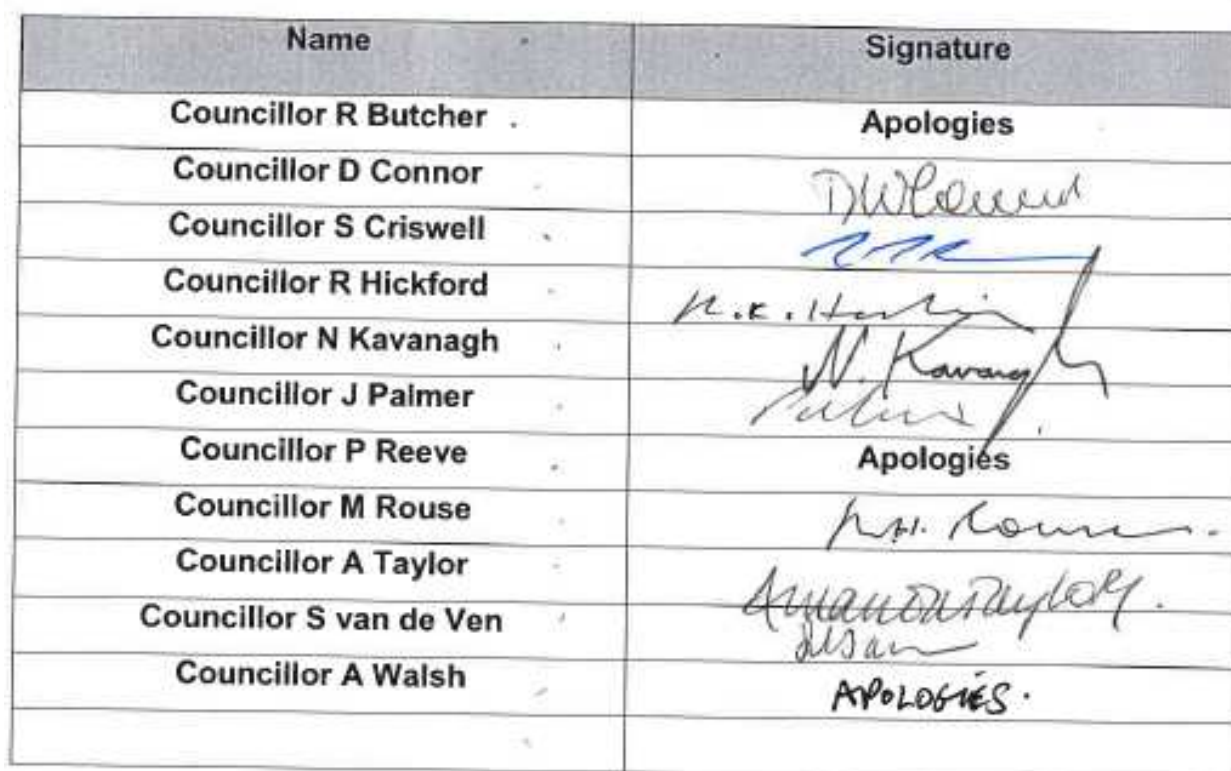 Name Signature
Councillor R Butcher Apologies
Councillor D Connor
Councillor S Criswell
Councillor R Hickford R.K.
Councillor N Kavanagh N. Kavanagh
Councillor J Palmer Palmer
Councillor P Reeve Apologies
Councillor M Rouse M.H. Rouse.
Councillor A Taylor Amanda Taylor.
Councillor S van de Ven
Councillor A Walsh APOLOGIES.